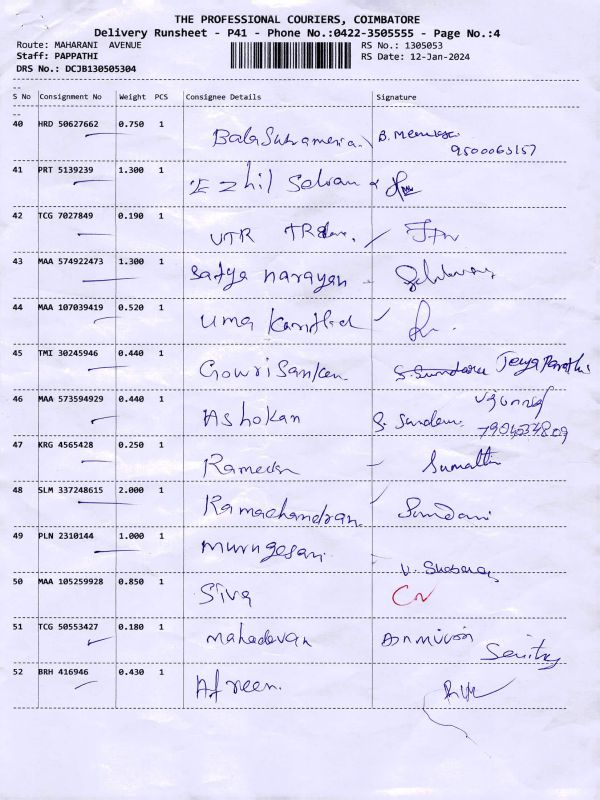 THE PROFESSIONAL COURIERS, COIMBATORE
Delivery Runsheet - P41 - Phone No.:0422-3505555 - Page No.:4
Route: MAHARANI AVENUE RS No.: 1305053
Staff: PAPPATHI RS Date: 12-Jan-2024
DRS No.: DCJB130505304
S No Consignment No Weight PCS Consignee Details Signature
40 HRD 50627662 0.750 1 B.
9500063157
41 PRT 5139239 1.300 1 Ezhil Selvan
42 TCG 7027849 0.190 1 UTR
43 MAA 574922473 1.300 1 Satya narayan
44 MAA 107039419 0.520 1 Uma
45 TMI 30245946 0.440 1 GowriSankar. S. Sundaru
46 MAA 573594929 0.440 1 Ashokan S. Sundaru
47 KRG 4565428 0.250 1 Ramesh Sumathi
48 SLM 337248615 2.000 1 Ramachandran
49 PLN 2310144 1.000 1 Murugesan
50 MAA 105259928 0.850 1 Siva
51 TCG 50553427 0.180 1 mahadevan
52 BRH 416946 0.430 1 Afreen.